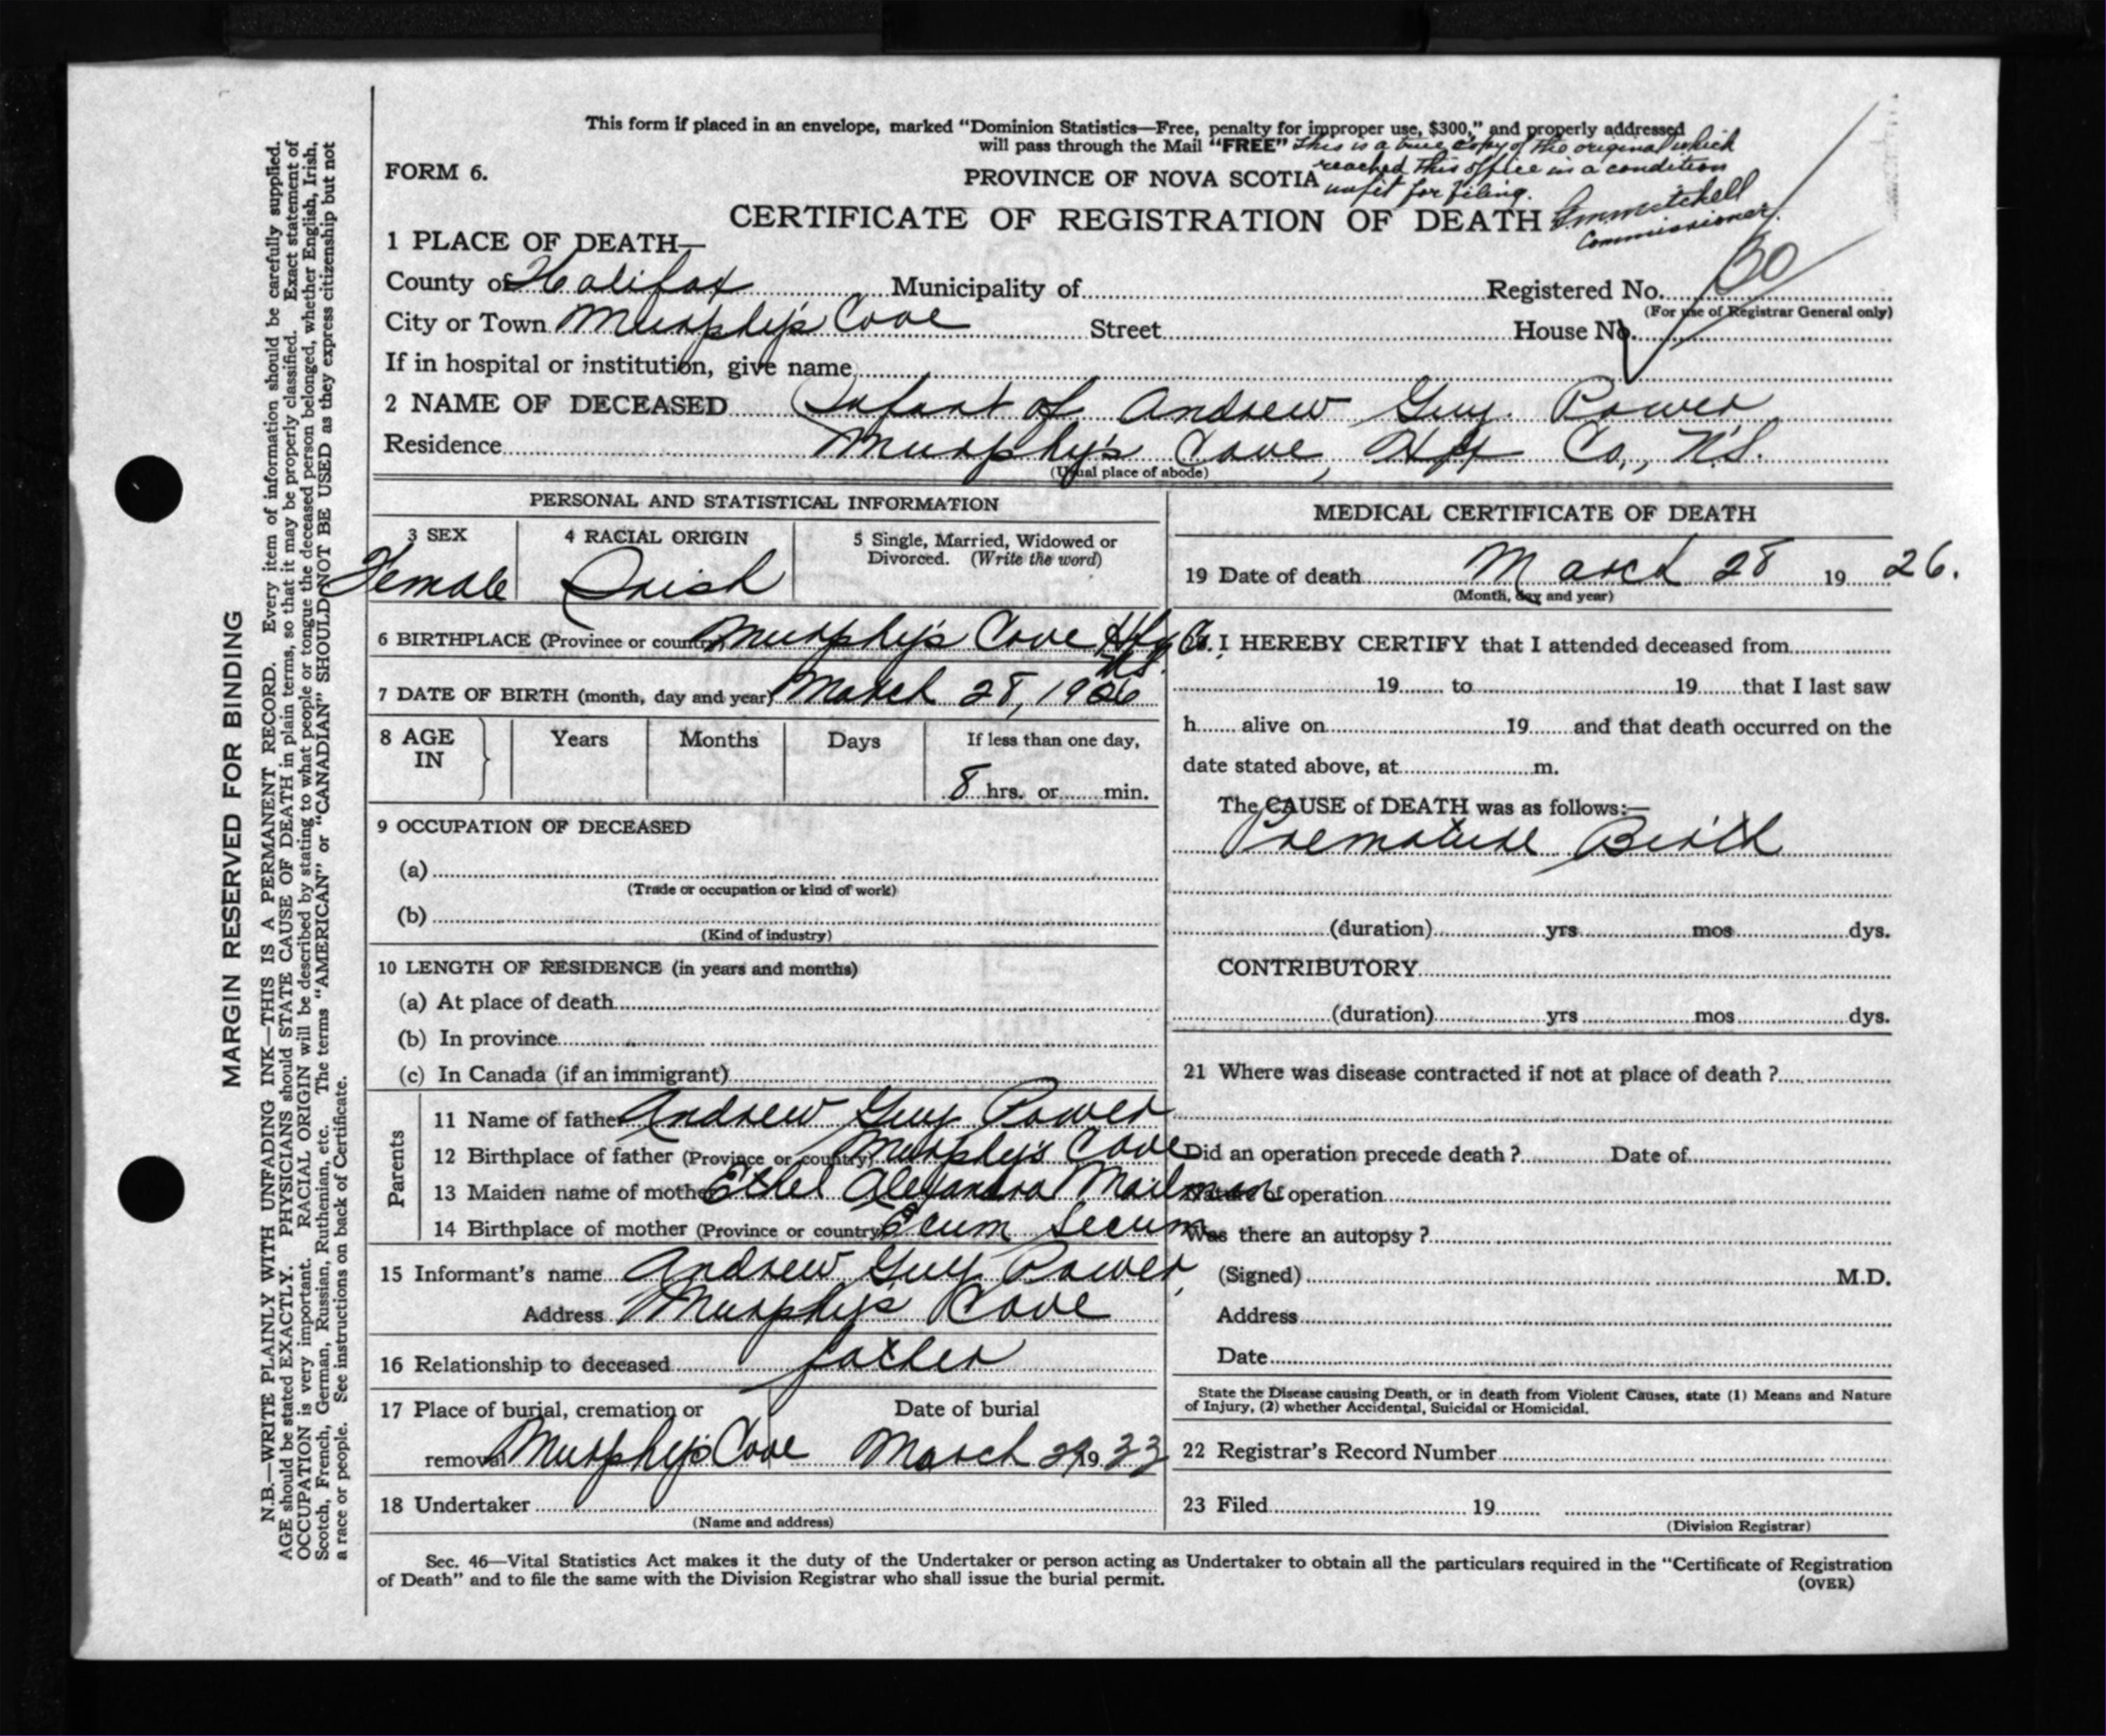 This form if placed in an envelope, marked “Dominion Statistics—Free, penalty for improper use, $300,” and properly addressed
will pass through the Mail “FREE” This is a true copy of the original which
reached this office in a condition
unfit for filing.
Mitchell
Commissioner
FORM 6.
PROVINCE OF NOVA SCOTIA
CERTIFICATE OF REGISTRATION OF DEATH
1 PLACE OF DEATH—
County of Halifax Municipality of Registered No.
(For use of Registrar General only)
City or Town Murphy's Cove Street House No.
If in hospital or institution, give name
2 NAME OF DECEASED Infant of Andrew Guy. Power
Residence Murphy's Cove, Hfx Co., N.S.
(Usual place of abode)
PERSONAL AND STATISTICAL INFORMATION
3 SEX 4 RACIAL ORIGIN 5 Single, Married, Widowed or
Divorced. (Write the word)
Female Irish
6 BIRTHPLACE (Province or country) Murphy's Cove Hfx Co.
N.S.
7 DATE OF BIRTH (month, day and year) March 28, 1926
8 AGE IN Years Months Days If less than one day,
8 hrs. or min.
9 OCCUPATION OF DECEASED
(a)
(Trade or occupation or kind of work)
(b)
(Kind of industry)
10 LENGTH OF RESIDENCE (in years and months)
(a) At place of death
(b) In province
(c) In Canada (if an immigrant)
Parents
11 Name of father Andrew Guy Power
12 Birthplace of father (Province or country) Murphy's Cove
13 Maiden name of mother Ethel Alexandra Mailman
14 Birthplace of mother (Province or country) Ecum Secum
15 Informant's name Andrew Guy Power,
Address Murphy's Cove
16 Relationship to deceased father
17 Place of burial, cremation or Date of burial
removal Murphy's Cove March 29 19 33
18 Undertaker
(Name and address)
MEDICAL CERTIFICATE OF DEATH
19 Date of death March 28 19 26.
(Month, day and year)
I HEREBY CERTIFY that I attended deceased from
19 to 19 that I last saw
h alive on 19 and that death occurred on the
date stated above, at m.
The CAUSE of DEATH was as follows:—
Premature Birth
(duration) yrs mos dys.
CONTRIBUTORY
(duration) yrs mos dys.
21 Where was disease contracted if not at place of death ?
Did an operation precede death ? Date of
of operation
Was there an autopsy ?
(Signed) M.D.
Address
Date
State the Disease causing Death, or in death from Violent Causes, state (1) Means and Nature
of Injury, (2) whether Accidental, Suicidal or Homicidal.
22 Registrar's Record Number
23 Filed 19
(Division Registrar)
Sec. 46—Vital Statistics Act makes it the duty of the Undertaker or person acting as Undertaker to obtain all the particulars required in the “Certificate of Registration
of Death” and to file the same with the Division Registrar who shall issue the burial permit.
(OVER)
MARGIN RESERVED FOR BINDING
N.B.—WRITE PLAINLY WITH UNFADING INK—THIS IS A PERMANENT RECORD. Every item of information should be carefully supplied.
AGE should be stated EXACTLY. PHYSICIANS should STATE CAUSE OF DEATH in plain terms, so that it may be properly classified. Exact statement of
OCCUPATION is very important. RACIAL ORIGIN will be described by stating to what people or tongue the deceased person belonged, whether English, Irish,
Scotch, French, German, Russian, Ruthenian, etc. The terms “AMERICAN” or “CANADIAN” SHOULD NOT BE USED as they express citizenship but not
a race or people. See instructions on back of Certificate.